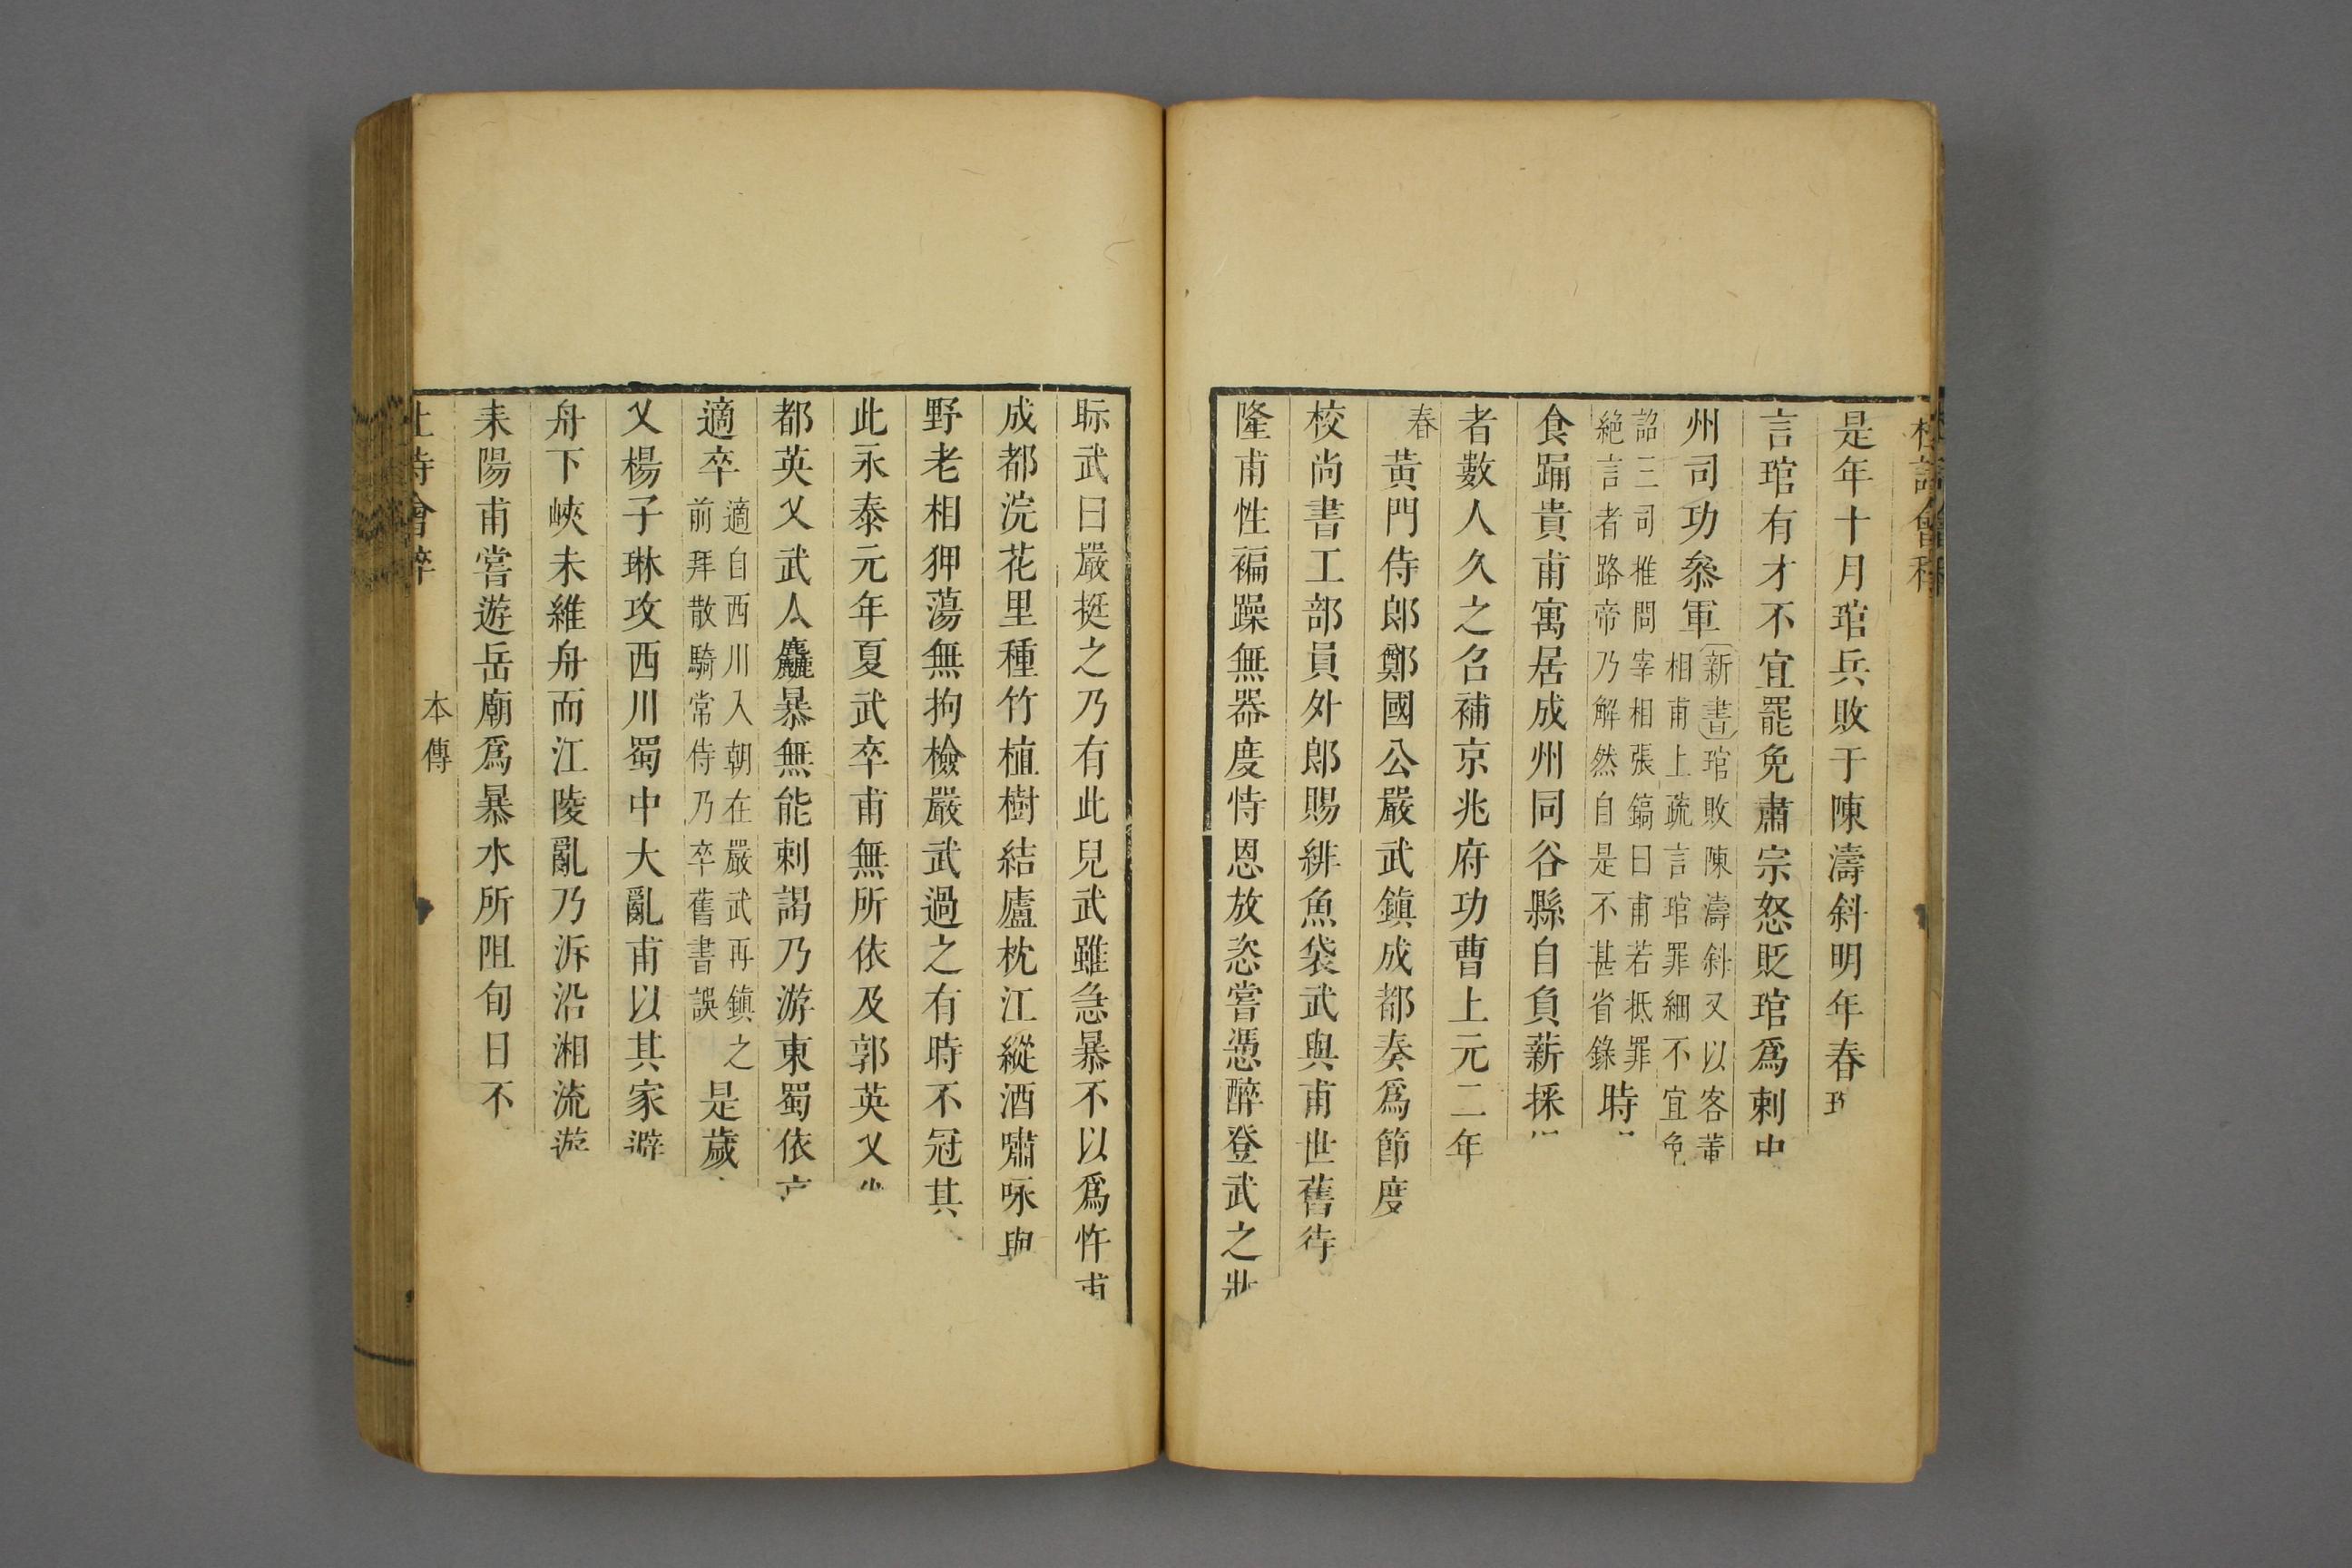 是年十月琯兵敗于陳濤斜明年春
言琯有才不宜罷免肅宗怒貶琯爲刺史
州司功叅軍新書琯敗陳濤斜又以客董
相甫上疏言琯罪細不宜免
詔三司推問宰相張鎬曰甫若抵罪
絶言者路帝乃解然自是不甚省錄時
食踊貴甫寓居成州同谷縣自負薪採
者數人久之召補京兆府功曹上元二年
春黃門侍郎鄭國公嚴武鎮成都奏爲節度
校尚書工部員外郎賜緋魚袋武與甫世舊待
隆甫性褊躁無器度恃恩放恣嘗憑醉登武之牀
眎武曰嚴挺之乃有此兒武雖急暴不以爲忤甫
成都浣花里種竹植樹結廬枕江縱酒嘯咏與
野老相狎蕩無拘檢嚴武過之有時不冠其
此永泰元年夏武卒甫無所依及郭英乂
都英乂武人麤暴無能刺謁乃游東蜀依高
適卒適自西川入朝在嚴武再鎮之
前拜散騎常侍乃卒舊書誤是歲
乂楊子琳攻西川蜀中大亂甫以其家避
舟下峽未維舟而江陵亂乃泝沿湘流遊
耒陽甫嘗遊岳廟爲暴水所阻旬日不
本傳